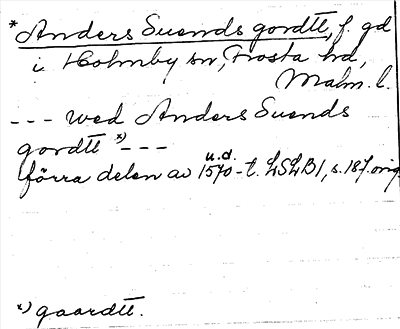 * Anders Suends gordtt, f. gd
i Holmby sn, Frosta hd,
Malm. l.
--- wed Anders Suends
gordtt x) ---
u.d.
förra delen av 1570-t. LSLB 1, s. 187. orig
x) gaardtt.